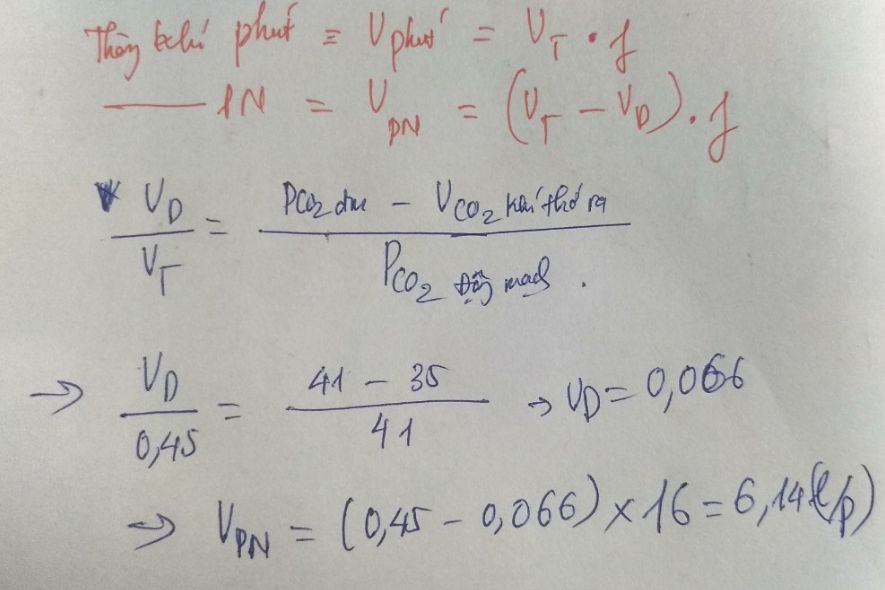 Thông khí phút = V phút = V_T . f
—— PN = V_PN = (V_T - V_D) . f
* V_D / V_T = (PCO2 đm - VCO2 khí thở ra) / (PCO2 động mạch .)
→ V_D / 0,45 = (41 - 35) / 41 → V_D = 0,066
⇒ V_PN = (0,45 - 0,066) × 16 = 6,14 (l/p)